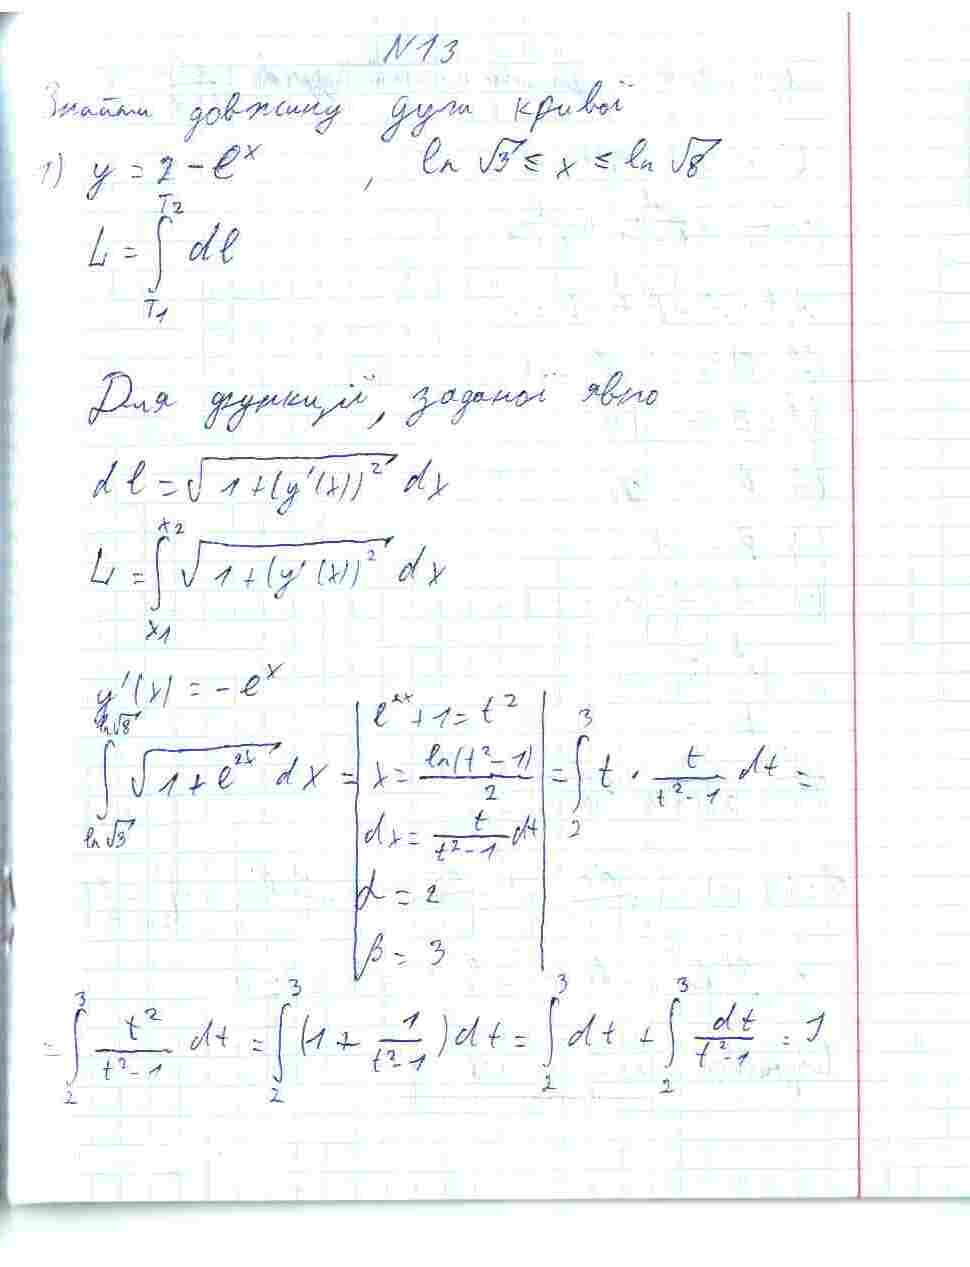 N13
Знайти довжину дуги кривої
1) y = 2 - e^x , ln √3 ≤ x ≤ ln √8
L = ∫_{T1}^{T2} dl
Для функції, заданої явно
dl = √(1+(y'(x))^2) dx
L = ∫_{x1}^{x2} √(1+(y'(x))^2) dx
y'(x) = -e^x
∫_{ln√3}^{ln√8} √(1+e^{2x}) dx = | e^{2x}+1=t^2
x = ln(t^2-1)/2
dx = t/(t^2-1) dt
α = 2
β = 3 | = ∫_2^3 t · t/(t^2-1) dt =
= ∫_2^3 t^2/(t^2-1) dt = ∫_2^3 (1 + 1/(t^2-1)) dt = ∫_2^3 dt + ∫_2^3 dt/(t^2-1) = J